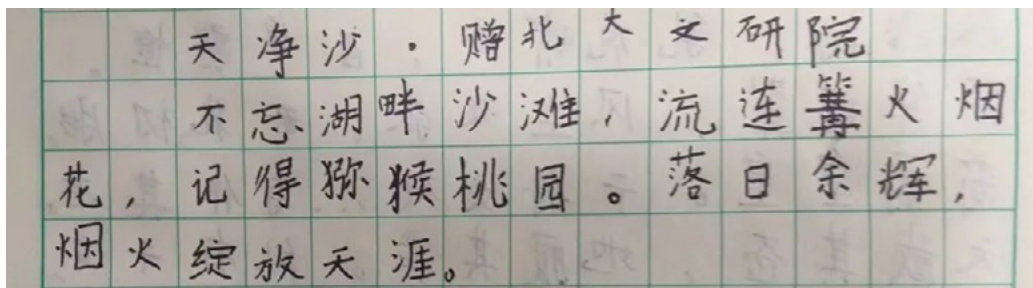 天净沙·赠北大文研院
不忘湖畔沙滩，流连篝火烟
花，记得猕猴桃园。落日余辉，
烟火绽放天涯。